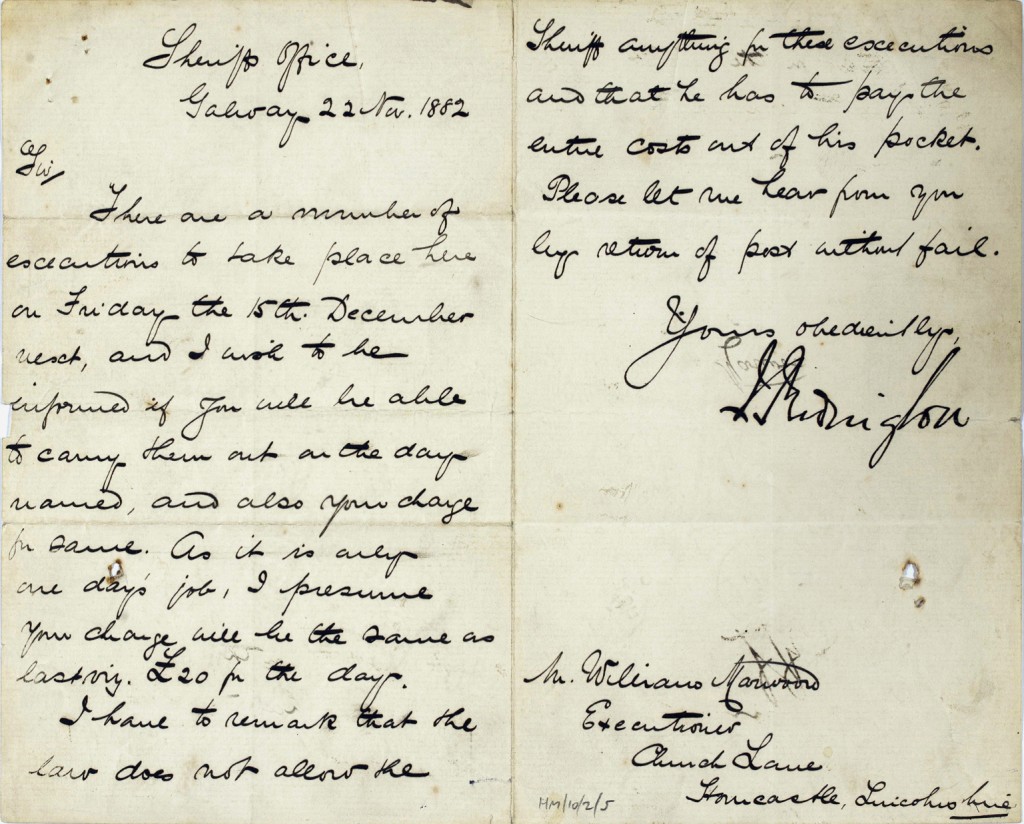 Sheriffs Office,
Galway 22 Nov. 1882
Sir,
There are a number of
executions to take place here
on Friday the 15th. December
next, and I wish to be
informed if you will be able
to carry them out on the day
named, and also your charge
for same. As it is only
one day's job, I presume
your charge will be the same as
last viz. £20 for the day.
I have to remark that the
law does not allow the
Sheriff anything for these executions
and that he has to pay the
entire costs out of his pocket.
Please let me hear from you
by return of post without fail.
Yours obediently,
Redington
Mr. William Marwood
Executioner
Church Lane
Horncastle, Lincolnshire
HM/10/2/5